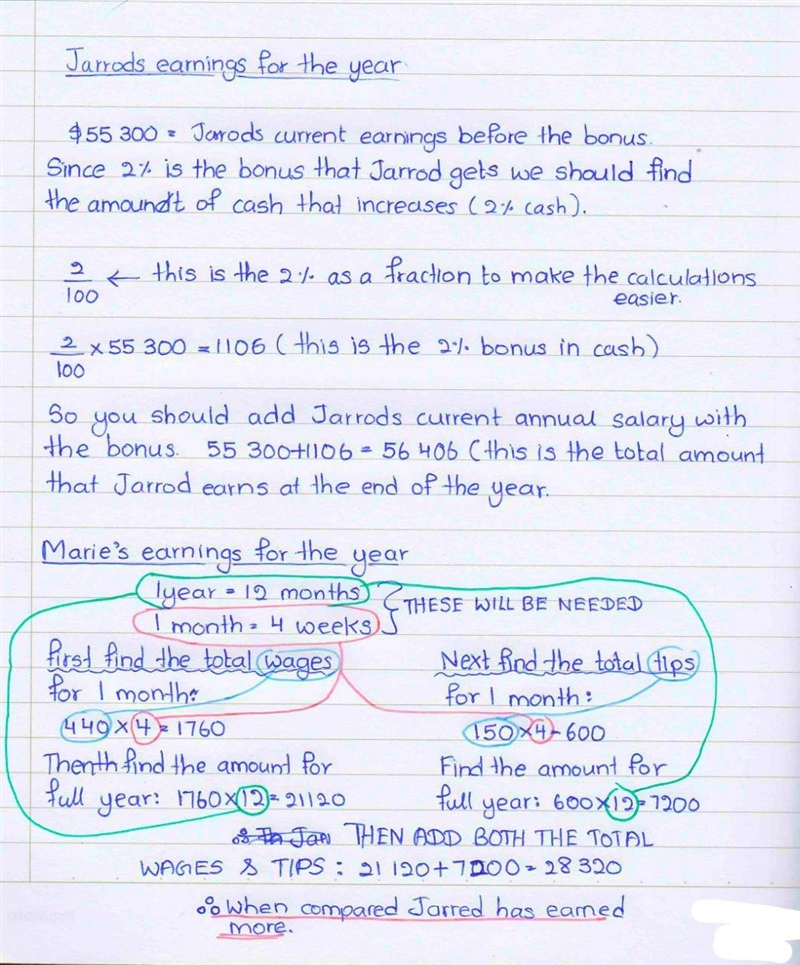 Jarrods earnings for the year
$55 300 = Jarrods current earnings before the bonus.
Since 2% is the bonus that Jarrod gets we should find
the amoundt of cash that increases (2% cash).
2/100 ← this is the 2% as a fraction to make the calculations
easier.
2/100 × 55 300 = 1106 (this is the 2% bonus in cash)
So you should add Jarrods current annual salary with
the bonus. 55 300+1106 = 56 406 (this is the total amount
that Jarrod earns at the end of the year.
Marie's earnings for the year
1 year = 12 months
1 month = 4 weeks
THESE WILL BE NEEDED
first find the total wages
for 1 month:
440 × 4 = 1760
Thenth find the amount for
full year: 1760×12=21120
Next find the total tips
for 1 month:
150×4=600
Find the amount for
full year: 600×12=7200
THEN ADD BOTH THE TOTAL
WAGES & TIPS : 21 120+7200=28 320
∴ When compared Jarred has earned
more.